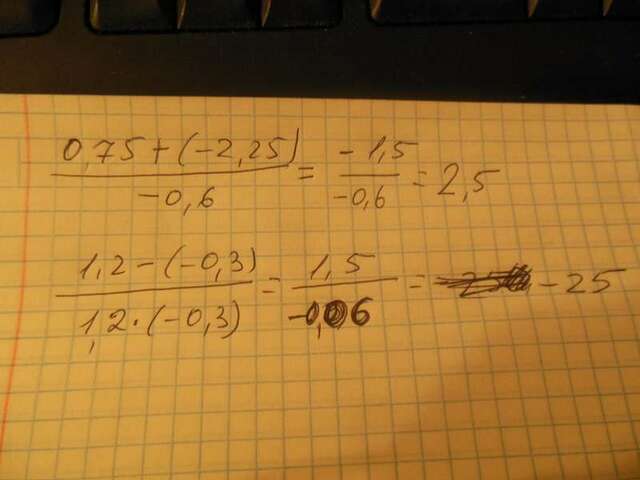 0,75+(-2,25)/-0,6 = -1,5/-0,6 = 2,5
1,2-(-0,3)/1,2·(-0,3) = 1,5/-0,06 = -25